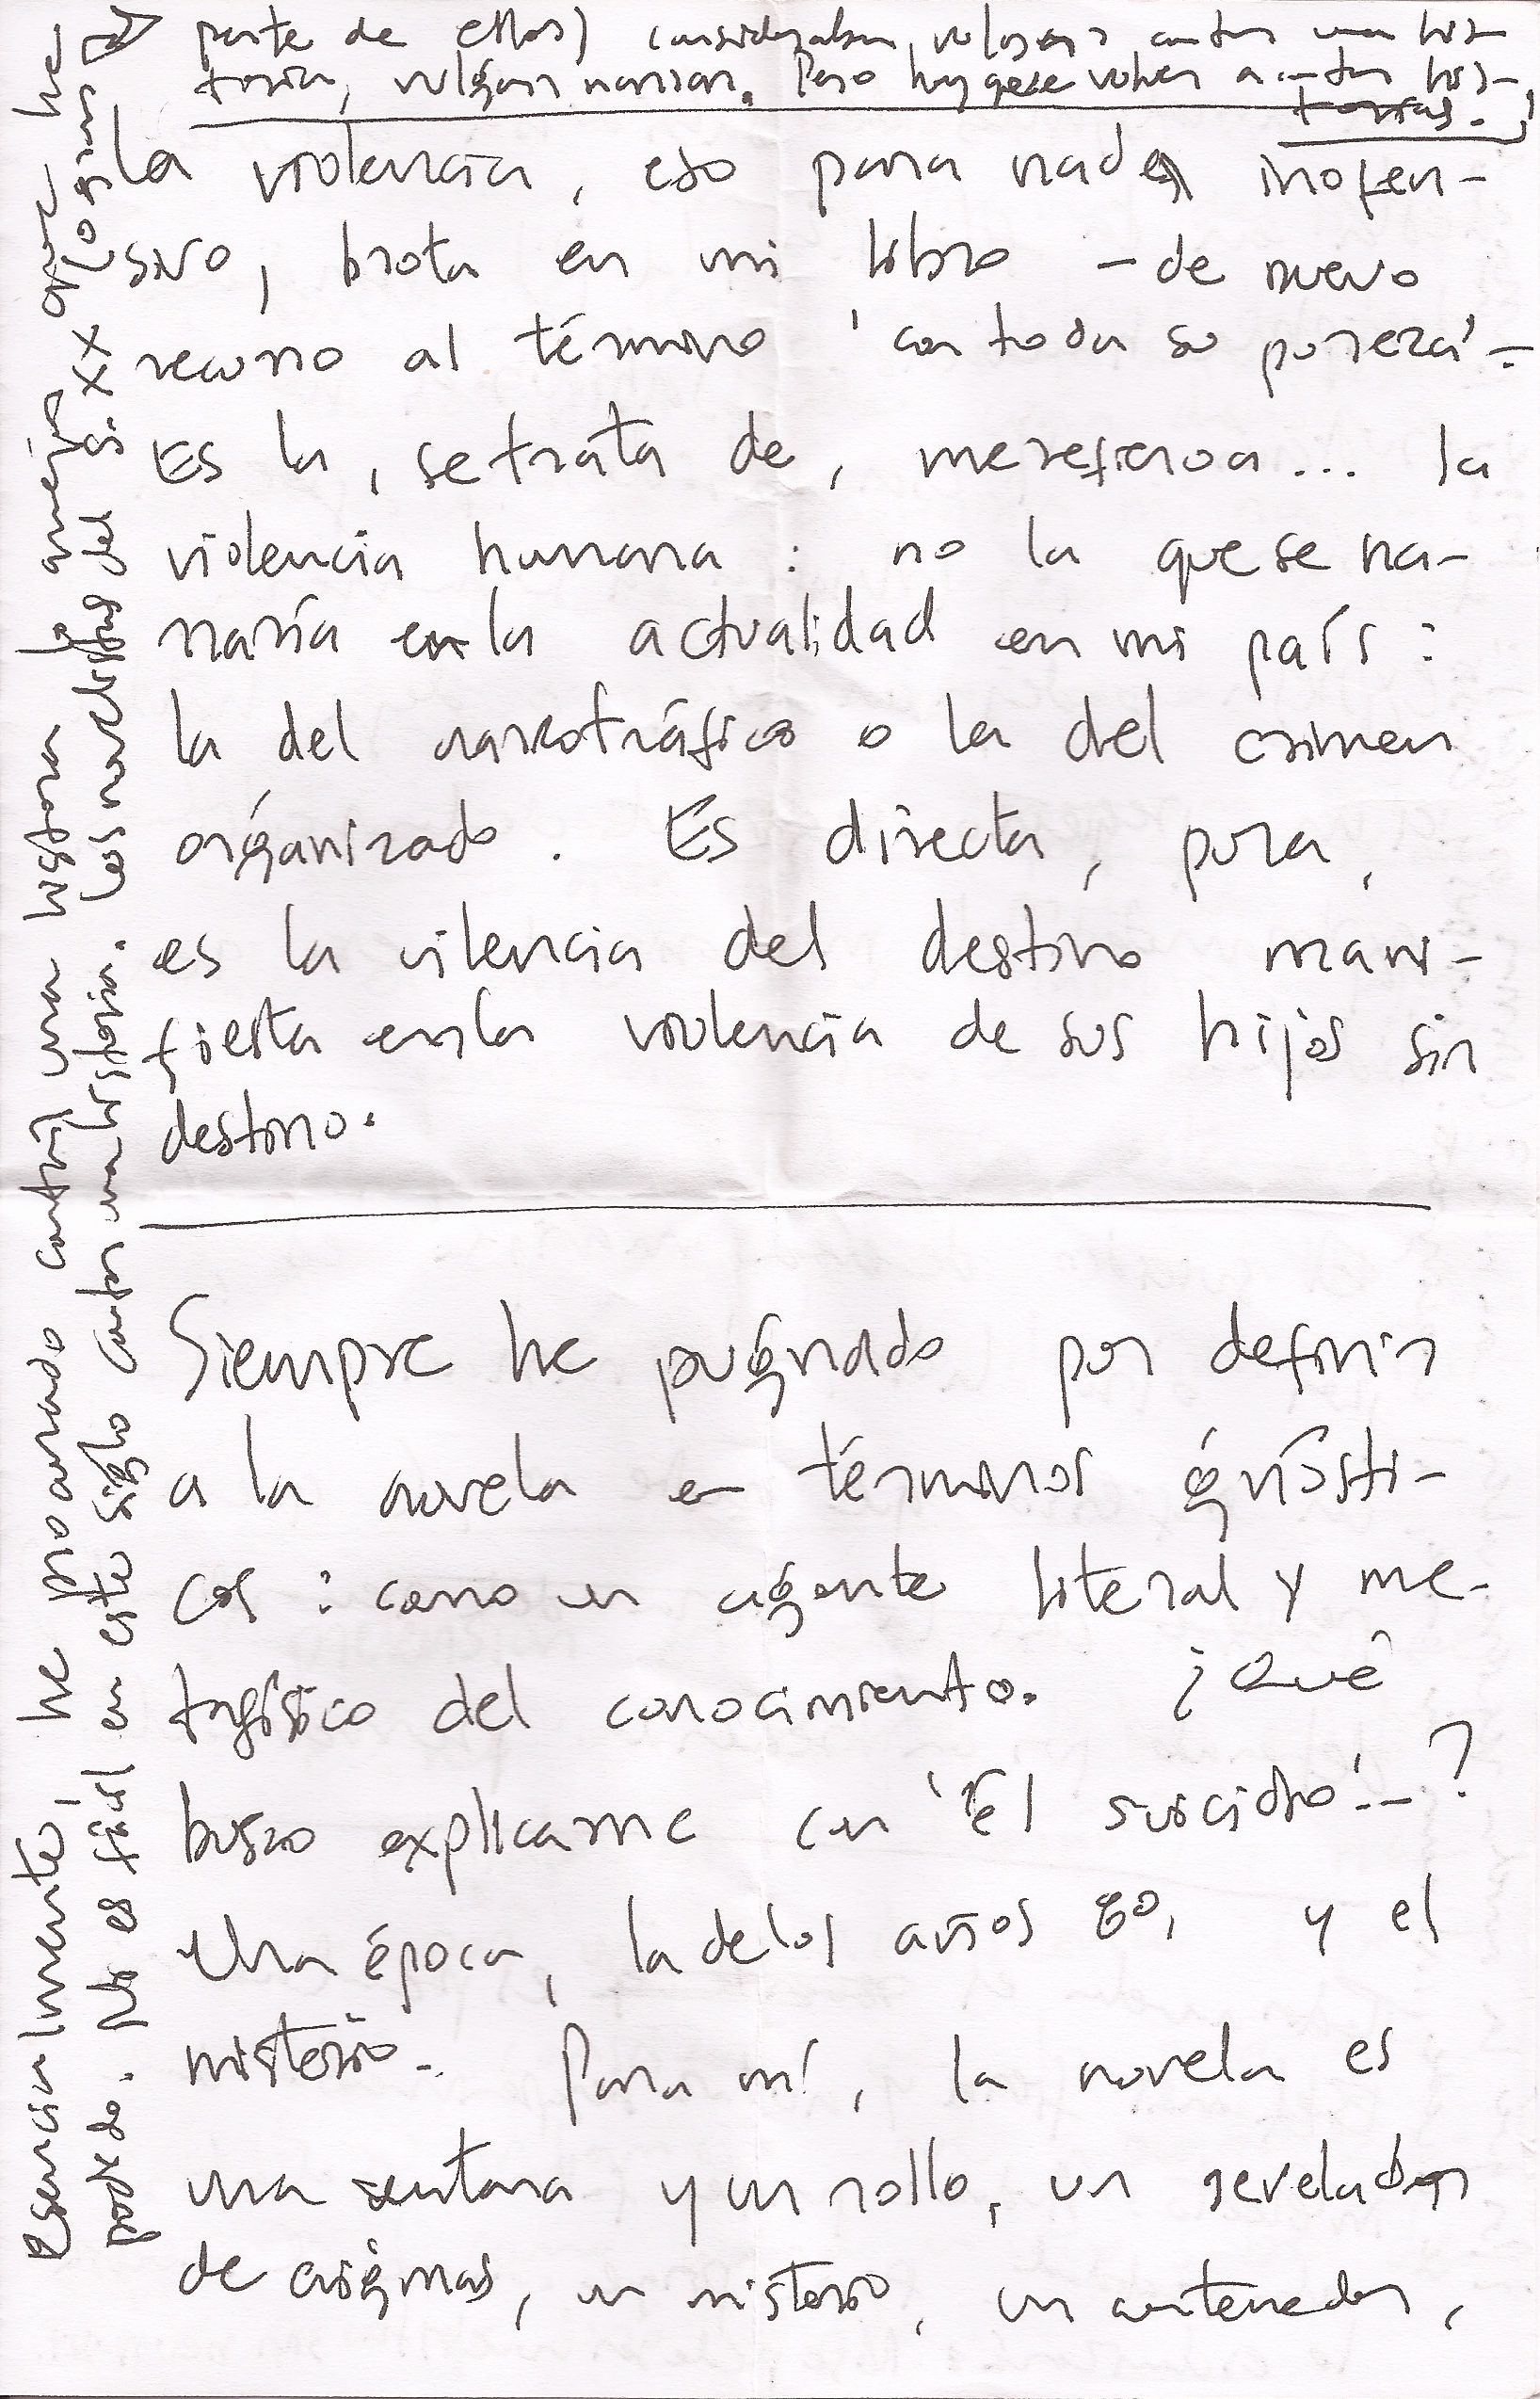 Esencialmente, he procurado contar una historia lo mejor que he
podido. No es fácil en este siglo contar una historia. Los novelistas del s. XX (o gran
parte de ellos) consideraban vulgar contar una his-
toria, vulgar narrar. Pero hay que volver a contar his-
torias.
la violencia, eso para nada inofen-
sivo, brota en mi libro - de nuevo
recurro al término 'con toda su pureza'-.
Es la, se trata de, me refiero a... la
violencia humana : no la que se na-
rraría en la actualidad en mi país :
la del narcotráfico o la del crimen
organizado. Es directa, pura,
es la vilencia del destino mani-
fiesta en la violencia de sus hijos sin
destino.
Siempre he pugnado por definir
a la novela en términos gnósti-
cos : como un agente literal y me-
tafísico del conocimiento. ¿Qué
busco explicarme con 'El suicidio'-?
Una época, la de los años 80, y el
misterio. Para mí, la novela es
una ventana y un rollo, un revelador
de enigmas, un misterio, un contenedor,